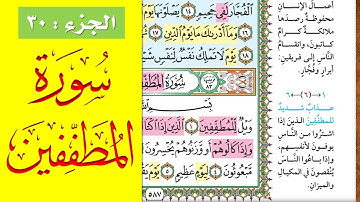 الجزء : ٣٠
سُورَة
المُطَفِّفِين
الْفُجَّارَ لَفِي جَحِيمٍ ١٤ يَصْلَوْنَهَا
وَمَا أَدْرَاكَ مَا يَوْمُ الدِّينِ ١٧
١٨ يَوْمَ لَا تَمْلِكُ نَفْسٌ لِنَفْسٍ
سُورَةُ المُطَفِّفِين
وَيْلٌ لِلْمُطَفِّفِينَ ١ الَّذِينَ إِذَا
وَإِذَا كَالُوهُمْ أَوْ وَزَنُوهُمْ يُخْسِرُونَ
مَبْعُوثُونَ ٤ لِيَوْمٍ عَظِيمٍ ٥
٥٨٧
أعمال الإنسان
محفوظة رصدها
ملائكة كرام
كاتبون، وانقسام
الناس إلى فريقين:
أبرار وفجار.
١←(٦)←٦
عذاب شديد
للمطففين الذين إذا
اشتروا من الناس
يوفون لأنفسهم،
وإذا باعوا الناس
ينقصون في المكيال
والميزان.